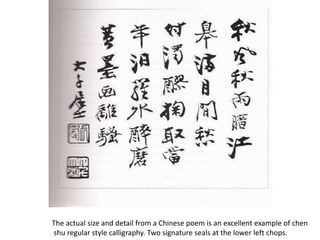 秋風秋雨暗江
皋日閒愁
對濁醪掬取當
年汨羅水醉磨
墨畫離騷
大千居士
The actual size and detail from a Chinese poem is an excellent example of chen
shu regular style calligraphy. Two signature seals at the lower left chops.